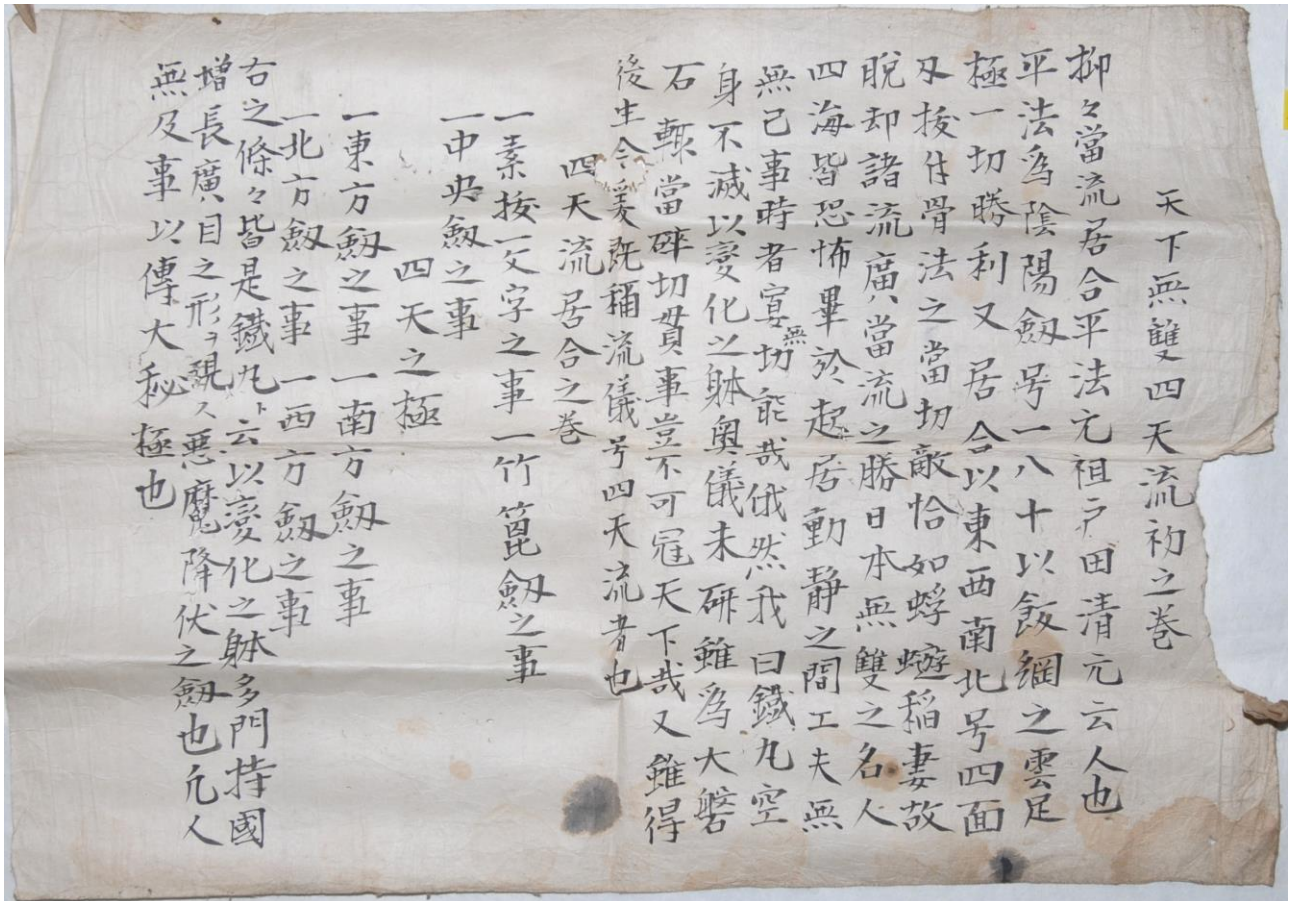 天下無雙四天流初之巻
抑々當流居合平法元祖戸田清元云人也
平法爲陰陽劔号一八十以飯綱之雲足
極一切勝利又居合以東西南北号四面
又拔身骨法之當切敵恰如蜉蝣稲妻故
脱却諸流廣ハ當流之勝日本無雙之名人
四海皆恐怖畢於起居動静之間工夫無
無己事時者宴無切能哉俄然我曰鐵丸空
身不滅以変化之躰奥儀未研雖爲大磐
石輙當砕切貫事豈不可冠天下哉又雖得
後生令爰既稱流儀号四天流者也
四天流居合之巻
一素拔一文字之事一竹箆劔之事
一中央劔之事
四天之極
一東方劔之事一南方劔之事
一北方劔之事一西方劔之事
右之條々皆是鐵丸ト云以變化之躰多門持國
増長廣ハ目之形ヲ親ス悪魔降伏之劔也凢人
無及事以傳大秘極也